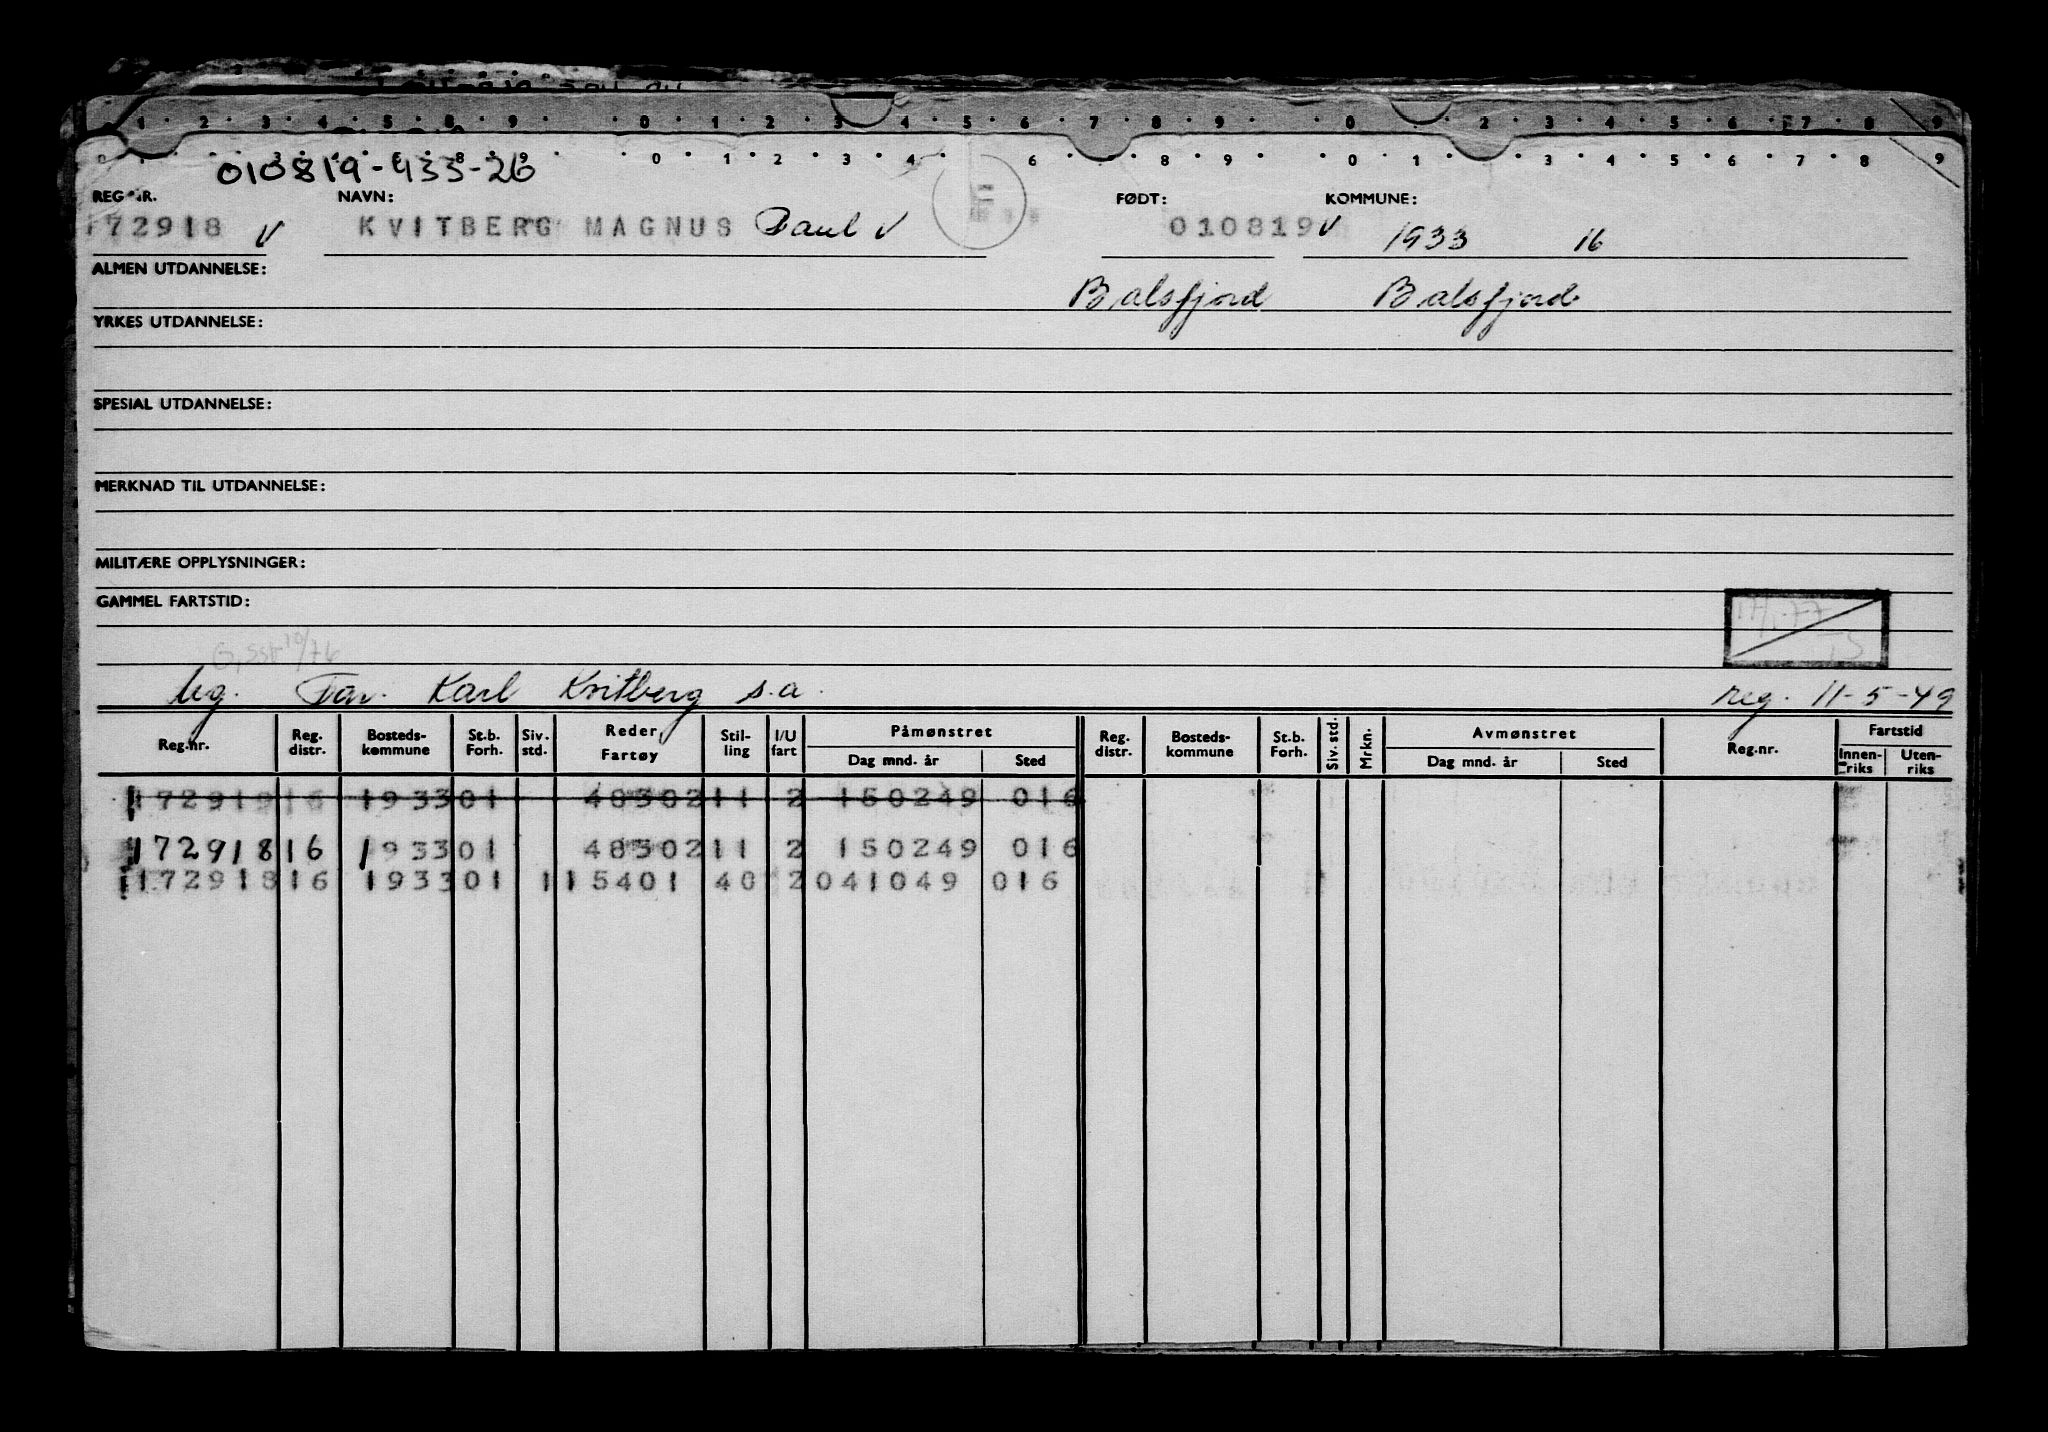 1 2 3 4 5 8 9 0 1 2 3 4 5 6 7 8 9 0 2 3 4 5 6 7 8 9
0 1 2 3 4 6 8 9 0 1 3 4 5 6 7 8 9
010819-433-26
REG. NR. NAVN: FØDT: KOMMUNE:
172918 V KVITBERG MAGNUS Paul V F. 010819 V 1933 16
ALMEN UTDANNELSE: Balsfjord Balsfjord
YRKES UTDANNELSE:
SPESIAL UTDANNELSE:
MERKNAD TIL UTDANNELSE:
MILITÆRE OPPLYSNINGER:
GAMMEL FARTSTID:
17/1-77
G, sst 10/76
Ug. Far. Karl Kvitberg s.a. reg. 11-5-49
Reg.nr. Reg. distr. Bosteds- kommune St.b. Forh. Siv. std. Reder, Fartøy Stil- ling I/U fart Påmønstret Dag mnd. år Sted Reg. distr. Bosteds- kommune St.b. Forh. Siv. std. Mrkn. Avmønstret Dag mnd. år Sted Reg.nr. Fartstid Innen- riks Uten- riks
172919 16 1933 01 48302 11 2 150249 016
172918 16 1933 01 48302 11 2 150249 016
172918 16 1933 01 1 15401 40 2 041049 016